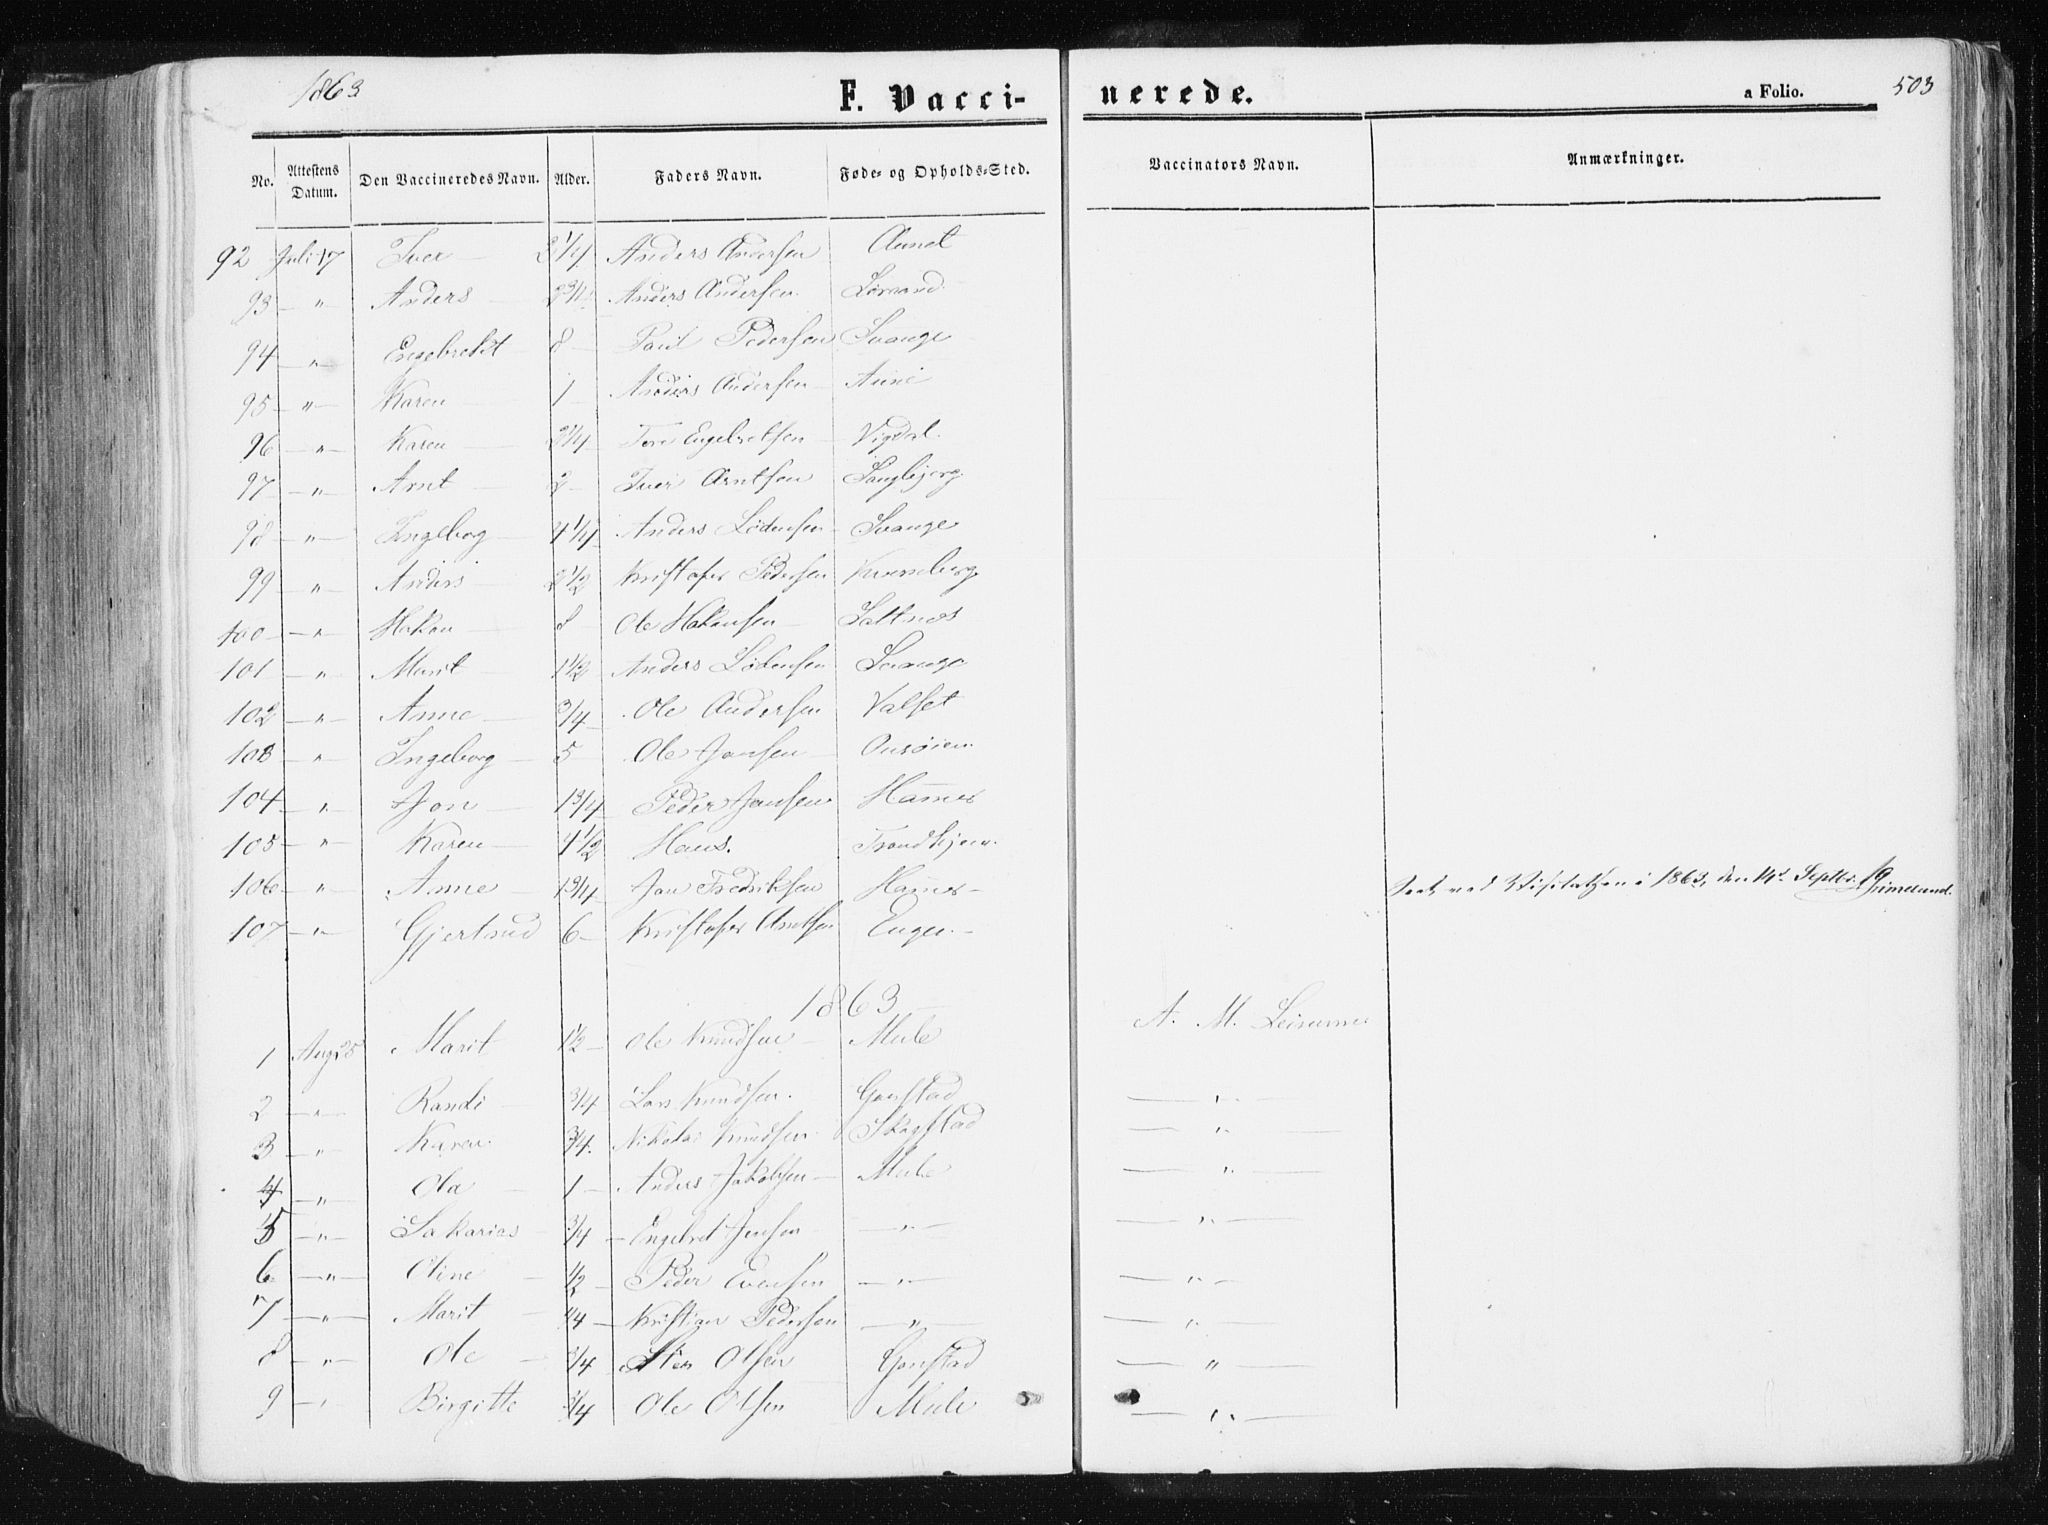 1863
F. Vacci-
nerede.
a Folio.
503
No. Attestens Datum. Den Vaccineredes Navn. Alder. Faders Navn. Føde- og Opholds-Sted. Vaccinators Navn. Anmærkninger.
92 Juli 17 Iver — 3 1/4 Anders Andersen Aunet
93 — " — Anders — 2 3/4 Anders Andersen
94 — " — Engebrekt 8 — Paul Pedersen Svange
95 — " — Karen — 1 — Anders Andersen — Aune
96 — " — Karen — Tore Engebretsen — Vigdal
97 — " — Arnt — 2 — Iver Arntsen Langbjerg
98 — " — Ingebog — 4 1/4 Anders Lødensen — Svange
99 — " — Anders — 2 1/2 Kristofer Pedersen Kvernberg
100 — " — Hakon — 8 Ole Hakonsen — Saltnes
101 — " — Marit — 1 1/2 Anders Lødensen Svange
102 — " — Anne — 3/4 Ole Andersen Valset
103 — " — Ingeborg — 5 Ole Jonsen — Ousøien
104 — " — Jon — 1 3/4 Peder Jonsen Hammer
105 — " — Karen — 4 1/2 Hans. Trondhjem
106 — " — Anne — 1 3/4 Jon Fredriksen Hammer — Seet ved Visitatsen i 1863, den 14d Septbr. Grimelund.
107 — " — Gjertrud 6 — Kristofer Arntsen Engen —
1863
1 Aug 25 Marit — 1/2 — Ole Knudsen — Mule A. M.
2 — " — Randi — 3/4 — Lars Knudsen. Gonstad — " —
3 — " — Karen 3/4. Nikolai Knudsen Skogstad — " —
4 — " — Ola — 1 — Anders Jakobsen — Mule — " —
5 — " — Sakarias 3/4 — Engebret Jensen — " — — " —
6 — " — Oline — 1/2 — Peder Evensen — " — — " —
7 — " — Marit — 1/4 — Kristian Pedersen — " — — " —
8 — " — Ole — 3/4 Sten Olsen Gonstad — " —
9 — " Birgitte 3/4 Ole Olsen Mule — " —